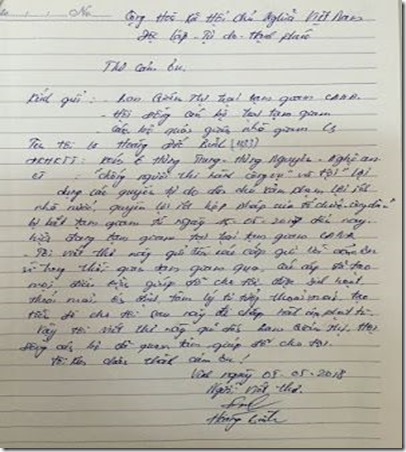 No
Cộng Hoà Xã Hội Chủ Nghĩa Việt Nam
Độc lập - Tự do - Hạnh phúc
Thư cảm ơn.
Kính gửi : - Ban Giám Thị trại tạm giam CANA.
- Hội đồng cán bộ trại tạm giam
- Cán bộ quản giáo nhà giam
Tên tôi là Hoàng Đức Bình
HKKTT: Xóm 6 Hưng Trung - Hưng Nguyên - Nghệ an
"chống người thi hành công vụ" và tội "lợi
dụng các quyền tự do dân chủ xâm phạm lợi ích
nhà nước, quyền lợi ích hợp pháp của tổ chức, công dân"
bị bắt tạm giam từ ngày 15-05-2017 đến nay.
hiện đang tạm giam tại trại tạm giam CANA
- Tôi viết thư này gửi tới các cấp lời cảm ơn
vì trong thời gian tạm giam qua, đã tạo
mọi điều kiện giúp đỡ cho tôi được sinh hoạt
thoải mái, ổn định tâm lý tư tưởng thoải mái, tạo
tiền đề cho tôi sau này để chấp hành án phạt tù.
Vậy tôi viết thư này gửi đến ban Giám Thị, Hội
đồng cán bộ đã quan tâm giúp đỡ cho tôi.
Tôi xin chân thành cảm ơn !
Vinh ngày 09-05-2018
Người viết thư.
Hoàng Bình